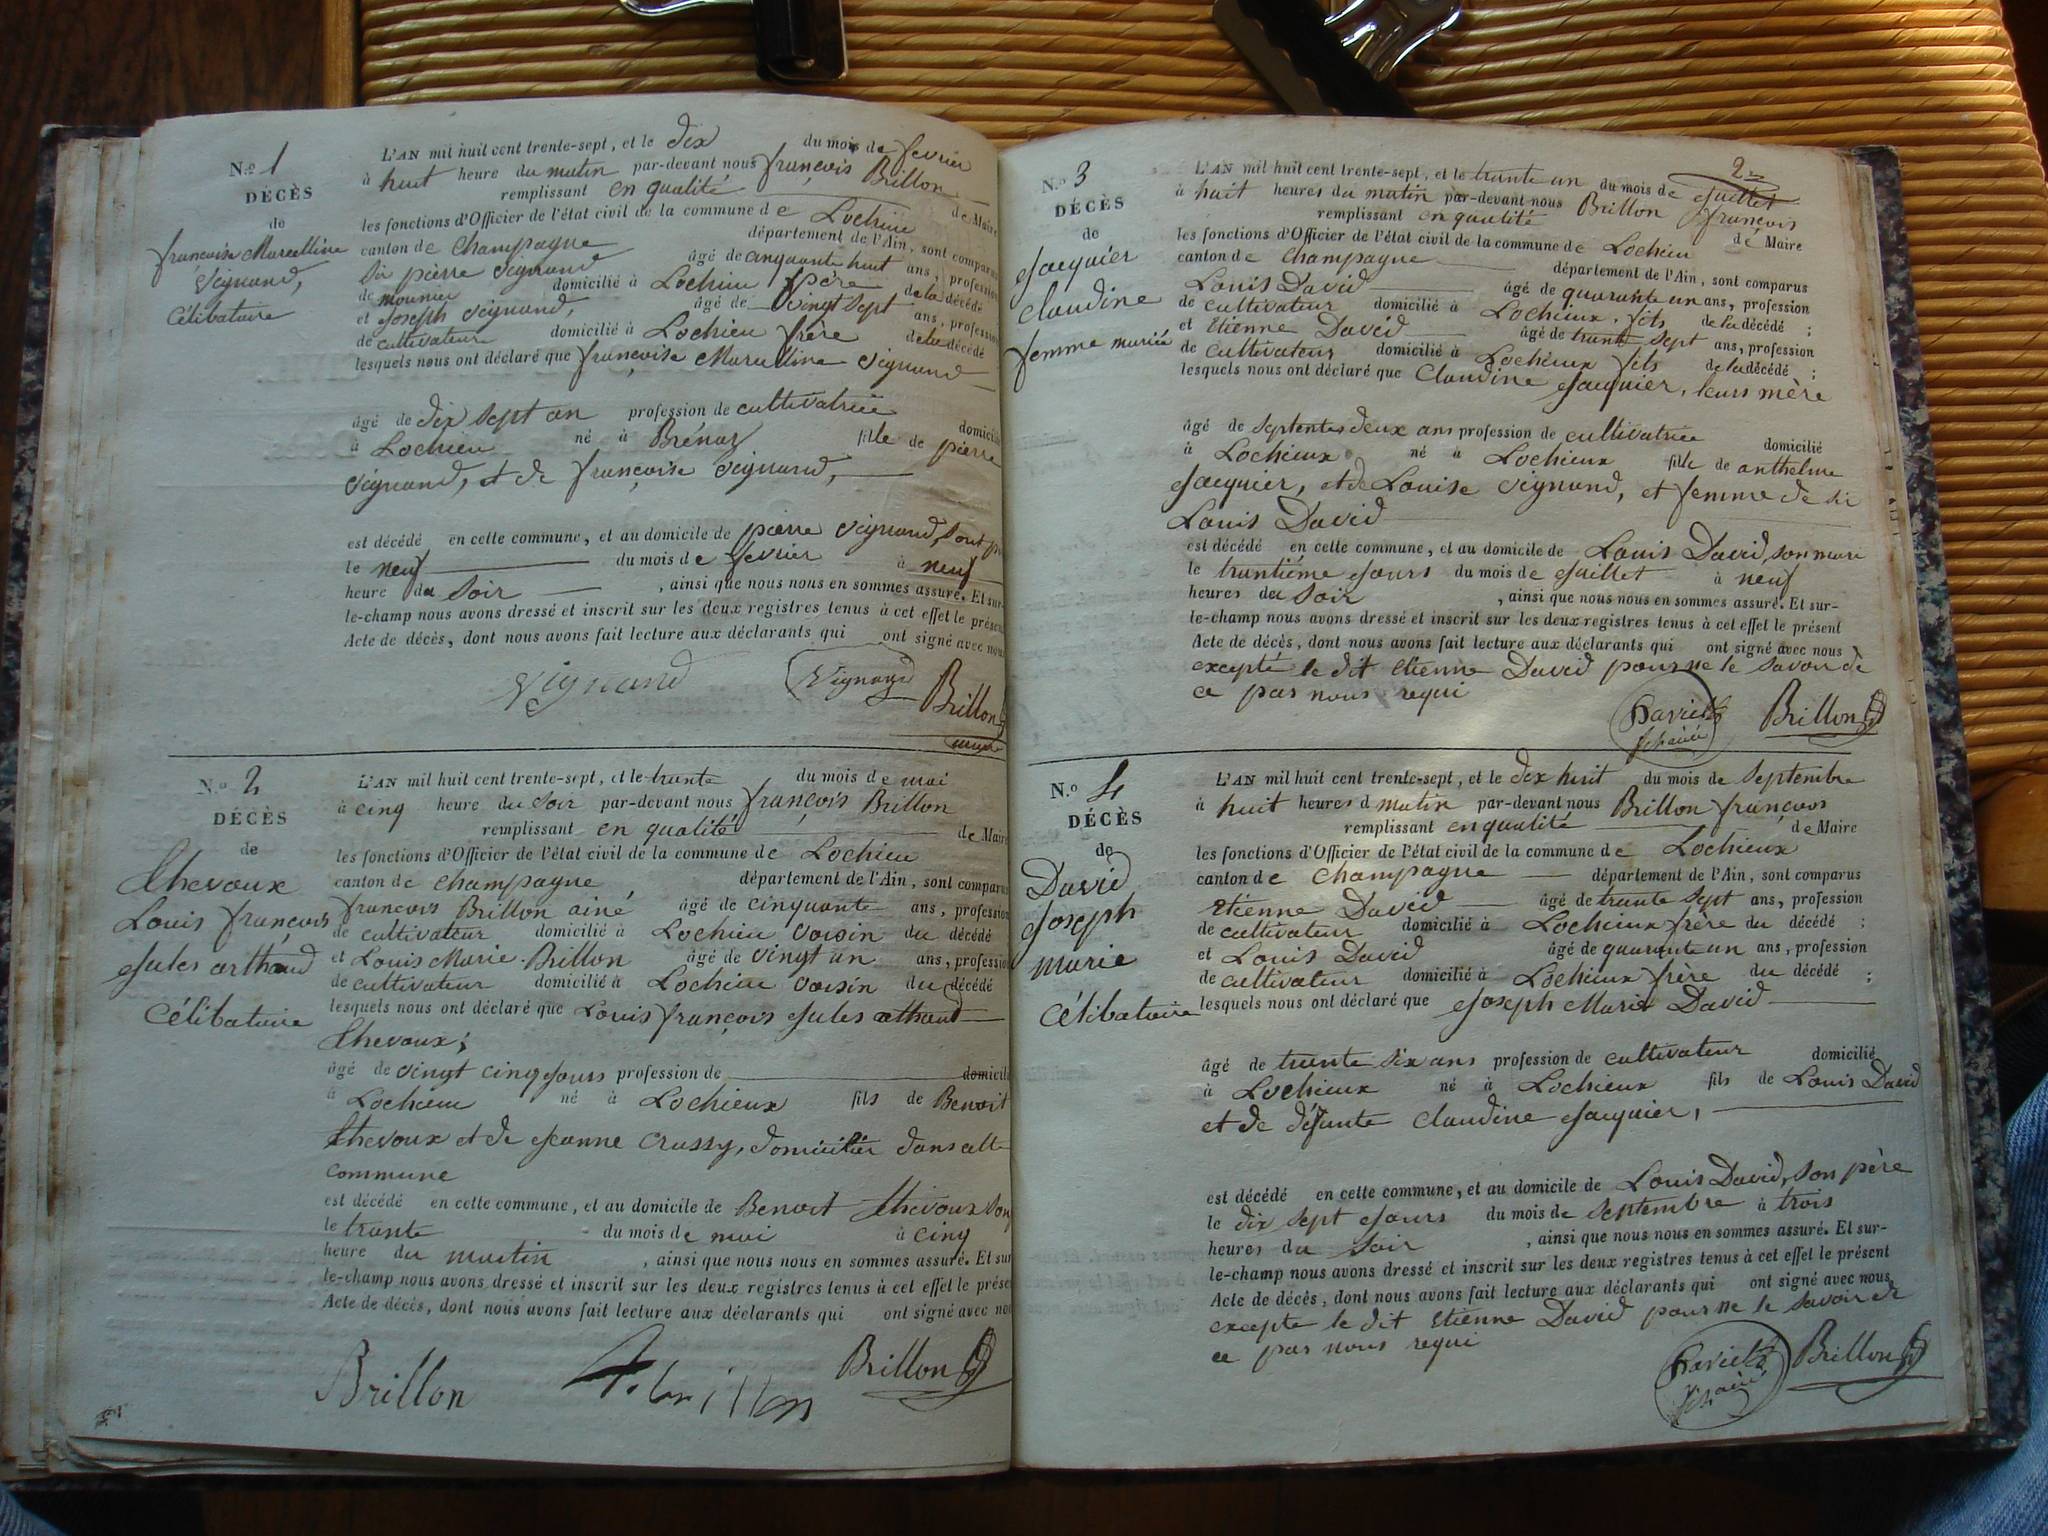 N.o 1
DÉCÈS
de
françoise Marcelline
Vignand,
Célibataire
L'AN mil huit cent trente-sept, et le dix du mois de fevrier
à huit heure du matin par-devant nous françois Brillon
remplissant en qualité de Maire
les fonctions d'Officier de l'état civil de la commune de Lochieu
canton de Champagne département de l'Ain, sont comparus
Sir pierre Vignand âgé de cinquante huit ans, profession
de mounier domicilié à Lochieu père de la décédé
et Joseph Vignand, âgé de vingt sept ans, profession
de cultivateur domicilié à Lochieu frère de la décédé
lesquels nous ont déclaré que françoise Marcelline Vignand
âgé de dix sept an profession de cultivatrice domicilié
à Lochieu né à Brénaz fille de pierre
Vignand, et de françoise Vignand,
est décédé en cette commune, et au domicile de pierre Vignand, son
le neuf du mois de fevrier à neuf
heure du Soir , ainsi que nous nous en sommes assuré. Et sur-
le-champ nous avons dressé et inscrit sur les deux registres tenus à cet effet le présent
Acte de décès, dont nous avons fait lecture aux déclarants qui ont signé avec nous
Vignand Vignand Brillon
N.o 2
DÉCÈS
de
Thevoux
Louis françois
Jules arthaud
Célibataire
L'AN mil huit cent trente-sept, et le trante du mois de mai
à cinq heure du Soir par-devant nous françois Brillon
remplissant en qualité de Maire
les fonctions d'Officier de l'état civil de la commune de Lochieu
canton de Champagne, département de l'Ain, sont comparus
françois Brillon ainé âgé de cinquante ans, profession
de cultivateur domicilié à Lochieu voisin du décédé
et Louis Marie Brillon âgé de vingt un ans, profession
de cultivateur domicilié à Lochieu voisin du décédé
lesquels nous ont déclaré que Louis françois Jules athaud
Thevoux;
âgé de vingt cinq Jours profession de domicilié
à Lochieu né à Lochieux fils de Benoit
Thevoux et de Jeanne Crussy, domicilier dans cette
commune
est décédé en cette commune, et au domicile de Benoit Thevoux Son
le trante du mois de mai à cinq
heure du mattin , ainsi que nous nous en sommes assuré. Et sur
le-champ nous avons dressé et inscrit sur les deux registres tenus à cet effet le prése
Acte de décès, dont nous avons fait lecture aux déclarants qui ont signé avec nou
Brillon f. brillon Brillon
2
N.o 3
DÉCÈS
de
Jacquier
Claudine
femme mariée
L'AN mil huit cent trente-sept, et le trante un du mois de Juillet
à huit heures du matin par-devant nous Brillon françois
remplissant en qualité de Maire
les fonctions d'Officier de l'état civil de la commune de Lochieu
canton de Champagne département de l'Ain, sont comparus
Louis David âgé de quarante un ans, profession
de cultivateur domicilié à Lochieux, fils de la décédé ;
et Etienne David âgé de trante sept ans, profession
de cultivateur domicilié à Lochieux fils de la décédé ;
lesquels nous ont déclaré que Claudine Jacquier, leurs mère
âgé de septentes deux ans profession de cultivatrice domicilié
à Lochieux né à Lochieux fille de anthelme
Jacquier, et de Louise Vignand, et femme de Sir
Louis David
est décédé en cette commune, et au domicile de Louis David, son mari
le trantième Jours du mois de Juillet à neuf
heures du Soir , ainsi que nous nous en sommes assuré. Et sur-
le-champ nous avons dressé et inscrit sur les deux registres tenus à cet effet le présent
Acte de décès, dont nous avons fait lecture aux déclarants qui ont signé avec nous
excepté le dit Etienne David pour ne le savoir de
ce par nous requi
David Brillon
N.o 4
DÉCÈS
de
David
Joseph
marie
Célibataire
L'AN mil huit cent trente-sept, et le dix huit du mois de Septembre
à huit heures d matin par-devant nous Brillon françois
remplissant en qualité de Maire
les fonctions d'Officier de l'état civil de la commune de Lochieux
canton de Champagne département de l'Ain, sont comparus
Etienne David âgé de trante sept ans, profession
de cultivateur domicilié à Lochieux frère du décédé ;
et Louis David âgé de quarante un ans, profession
de cultivateur domicilié à Lochieux frère du décédé ;
lesquels nous ont déclaré que Joseph Marie David
âgé de trante Six ans profession de cultivateur domicilié
à Lochieux né à Lochieux fils de Louis David
et de défunte Claudine Jacquier,
est décédé en cette commune, et au domicile de Louis David, son père
le dix sept Jours du mois de Septembre à trois
heures du Soir , ainsi que nous nous en sommes assuré. Et sur-
le-champ nous avons dressé et inscrit sur les deux registres tenus à cet effet le présent
Acte de décès, dont nous avons fait lecture aux déclarants qui ont signé avec nous
excepte le dit Etienne David pour ne le savoir de
ce par nous requi
David Brillon